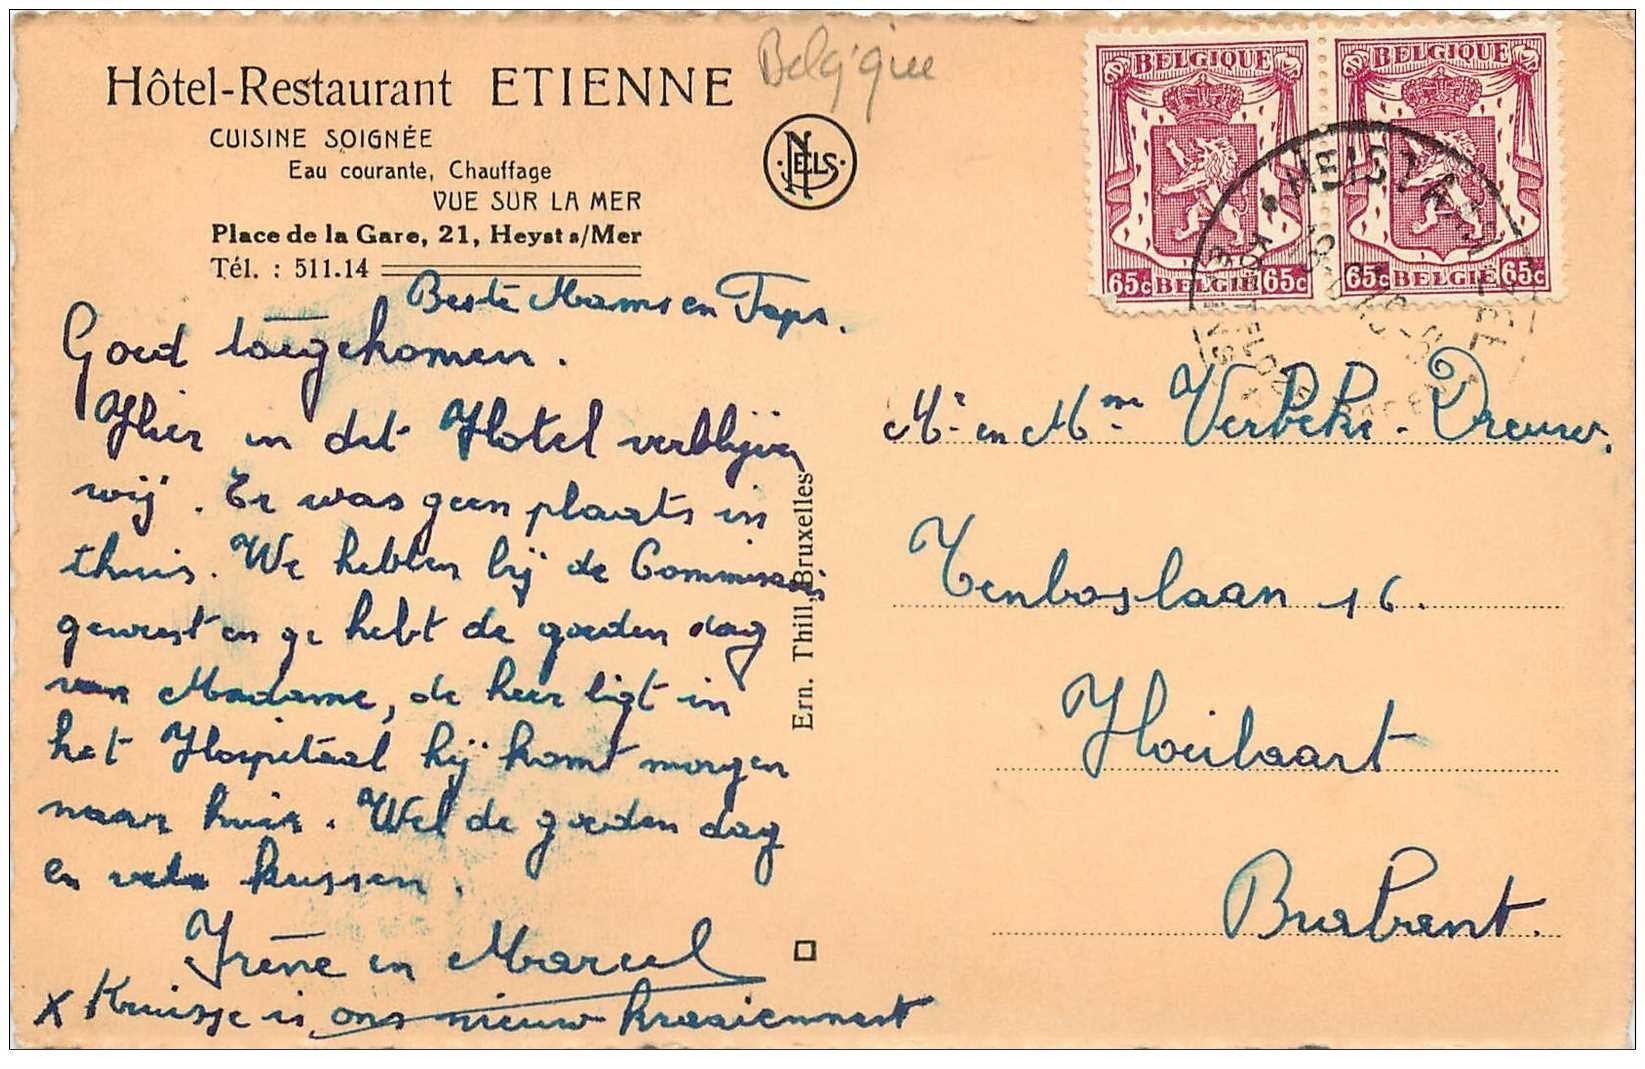 Belgique
Hôtel-Restaurant ETIENNE
CUISINE SOIGNÉE
Eau courante, Chauffage
VUE SUR LA MER
Place de la Gare, 21, Heyst s/Mer
Tél. : 511.14
NELS
BELGIQUE
65c BELGIE 65c
BELGIQUE
65c BELGIE 65c
Beste Mams en Taps.
Goed toegekomen.
Hier in dit Hotel verblijven
wij. Er was geen plaats in
thuis. We hebben bij de Commissaris
geweest en ge hebt de goeden dag
van Madame, de heer ligt in
het Hospitaal hij komt morgen
naar huis. Wel de goeden dag
en vele kussen.
Irène en Marcel
x Kruisje is ons nieuw kraaiennest
Ern. Thill, Bruxelles
Mr en Mme Verbeke-Dreuw.
Tenboslaan 16.
Hoeilaart
Brabant.